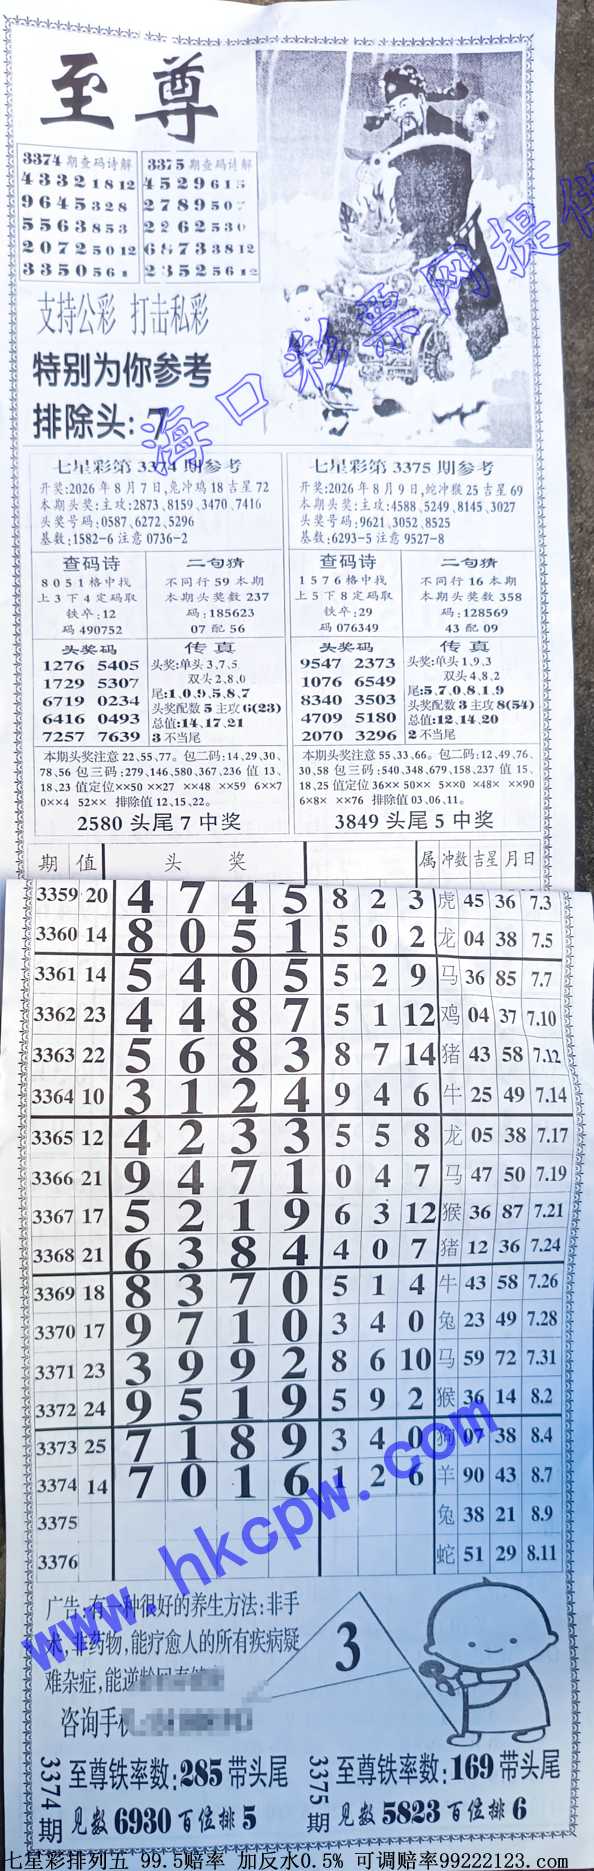 至尊
3374期查码诗解
4332 1812
9645 328
5563 853
2072 5012
3350 561
3375期查码诗解
4529 615
2789 507
2262 530
6873 3812
2352 5612
支持公彩 打击私彩
特别为你参考
排除头:7
海口彩票网提供
七星彩第3374期参考
开奖:2026年8月7日,兔冲鸡18吉星72
本期头奖:主攻:2873、8159、3470、7416
头奖号码:0587、6272、5296
基数:1582-6 注意0736-2
查码诗
8051格中找
上3下4定码取
铁卒:12
码490752
二句猜
不同行59本期
本期头奖数237
码:185623
07配56
头奖码
1276 5405
1729 5307
6719 0234
6416 0493
7257 7639
传真
头奖:单头3,7,5
双头2,8,0
尾:1、0、9、5、8、7
头奖配数5主攻6(23)
总值:14、17、21
3不当尾
本期头奖注意22、55、77。包二码:14、29、30、
78、56包三码:279、146、580、367、236 值13、
18、23值定位××50 ××27 ××48 ××59 6××7
0××4 52×× 排除值12、15、22。
2580头尾7中奖
七星彩第3375期参考
开奖:2026年8月9日,蛇冲猴25吉星69
本期头奖:主攻:4588、5249、8145、3027
头奖号码:9621、3052、8525
基数:6293-5 注意9527-8
查码诗
1576格中找
上5下8定码取
铁卒:29
码076349
二句猜
不同行16本期
本期头奖数358
码:128569
43配09
头奖码
9547 2373
1076 6549
8340 3503
4709 5180
2070 3296
传真
头奖:单头1,9,3
双头4,8,2
尾:5、7、0、8、1、9
头奖配数3主攻8(54)
总值:12、14、20
2不当尾
本期头奖注意55、33、66。包二码:12、49、76、
30、58包三码:540、348、679、158、237 值15、
18、25值定位36×× 50×× 5××0 ×48× ××90
6×8× ××76 排除值03、06、11。
3849头尾5中奖
期 值 头奖 属 冲数 吉星 月日
3359 20 4 7 4 5 8 2 3 虎 45 36 7.3
3360 14 8 0 5 1 5 0 2 龙 04 38 7.5
3361 14 5 4 0 5 5 2 9 马 36 85 7.7
3362 23 4 4 8 7 5 1 12 鸡 04 37 7.10
3363 22 5 6 8 3 8 7 14 猪 43 58 7.12
3364 10 3 1 2 4 9 4 6 牛 25 49 7.14
3365 12 4 2 3 3 5 5 8 龙 05 38 7.17
3366 21 9 4 7 1 0 4 7 马 47 50 7.19
3367 17 5 2 1 9 6 3 12 猴 36 87 7.21
3368 21 6 3 8 4 4 0 7 猪 12 36 7.24
3369 18 8 3 7 0 5 1 4 牛 43 58 7.26
3370 17 9 7 1 0 3 4 0 兔 23 49 7.28
3371 23 3 9 9 2 8 6 10 马 59 72 7.31
3372 24 9 5 1 9 5 9 2 猴 36 14 8.2
3373 25 7 1 8 9 3 4 0 狗 07 38 8.4
3374 14 7 0 1 6 1 2 6 羊 90 43 8.7
3375 兔 38 21 8.9
3376 蛇 51 29 8.11
www.hkcpw.com
广告:有一种很好的养生方法:非手
术,非药物,能疗愈人的所有疾病疑
难杂症,能逆龄回春
咨询手机
3
3374期
至尊铁率数:285带头尾
见数6930百位排5
3375期
至尊铁率数:169带头尾
见数5823百位排6
七星彩排列五 99.5赔率 加反水0.5% 可调赔率99222123.com